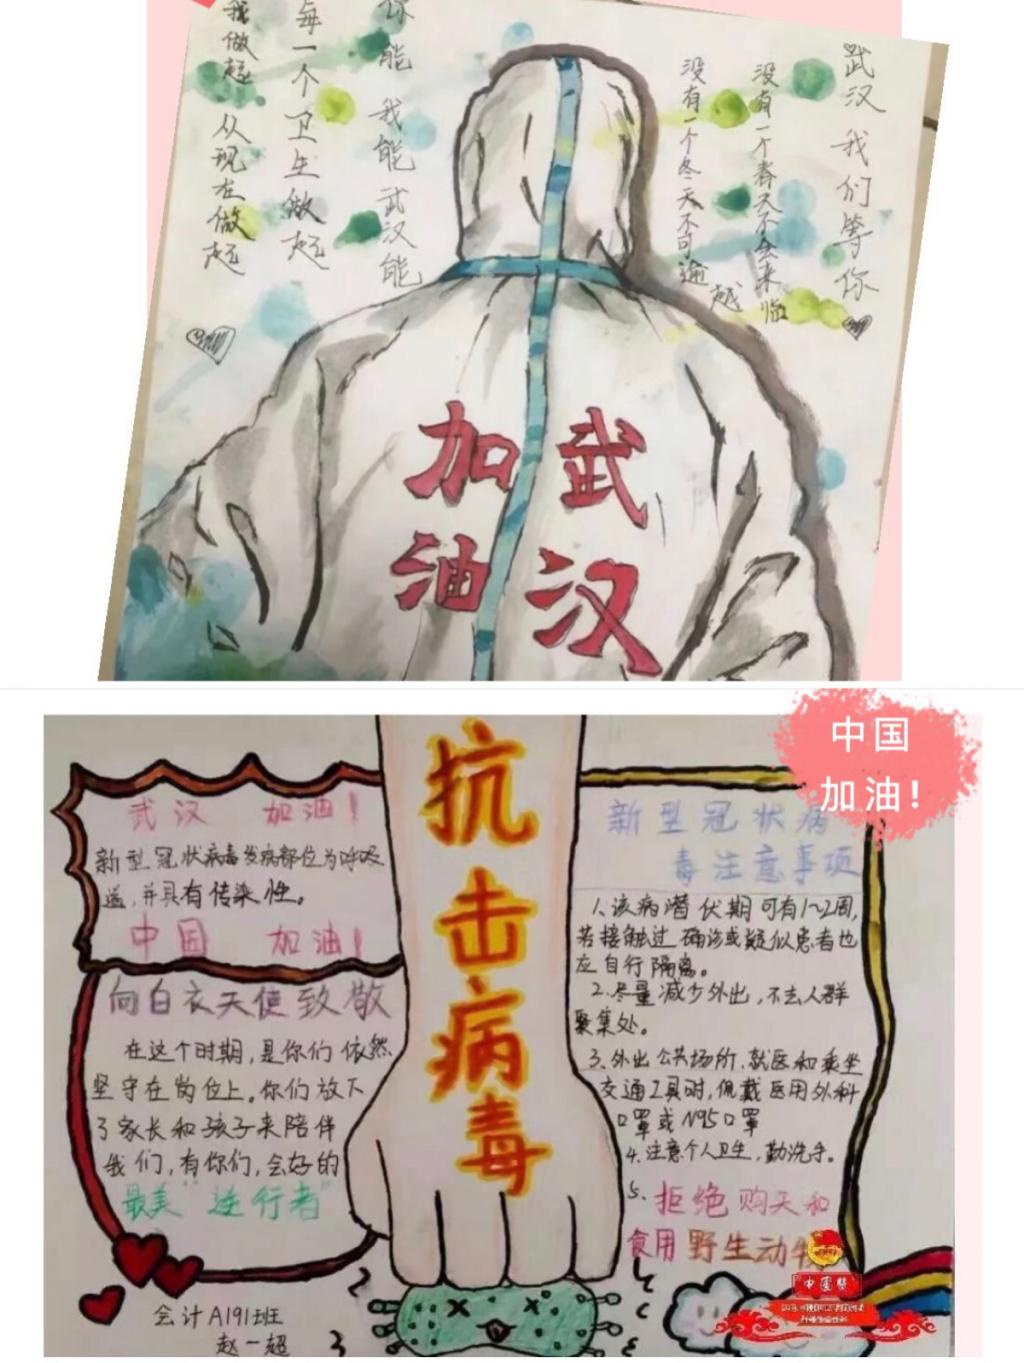 武汉 我们等你
没有一个春天不会来临
没有一个冬天不可逾越
加油
武汉
你能 我能 武汉能
每一个卫生做起
我做起 从现在做起
中国
加油!
抗击病毒
武汉 加油!
新型冠状病毒发病部位为呼吸
道,并具有传染性。
中国 加油!
向白衣天使致敬
在这个时期,是你们依然
坚守在岗位上。你们放下
了家长和孩子来陪伴
我们,有你们,会好的
最美"逆行者"
会计A191班
赵一超
新型冠状病
毒注意事项
1.该病潜伏期可有1~2周,
若接触过确诊或疑似患者也
应自行隔离。
2.尽量减少外出,不去人群
聚集处。
3.外出公共场所、就医和乘坐
交通工具时,佩戴医用外科
口罩或N95口罩
4.注意个人卫生,勤洗手。
5、拒绝购买和
食用野生动物